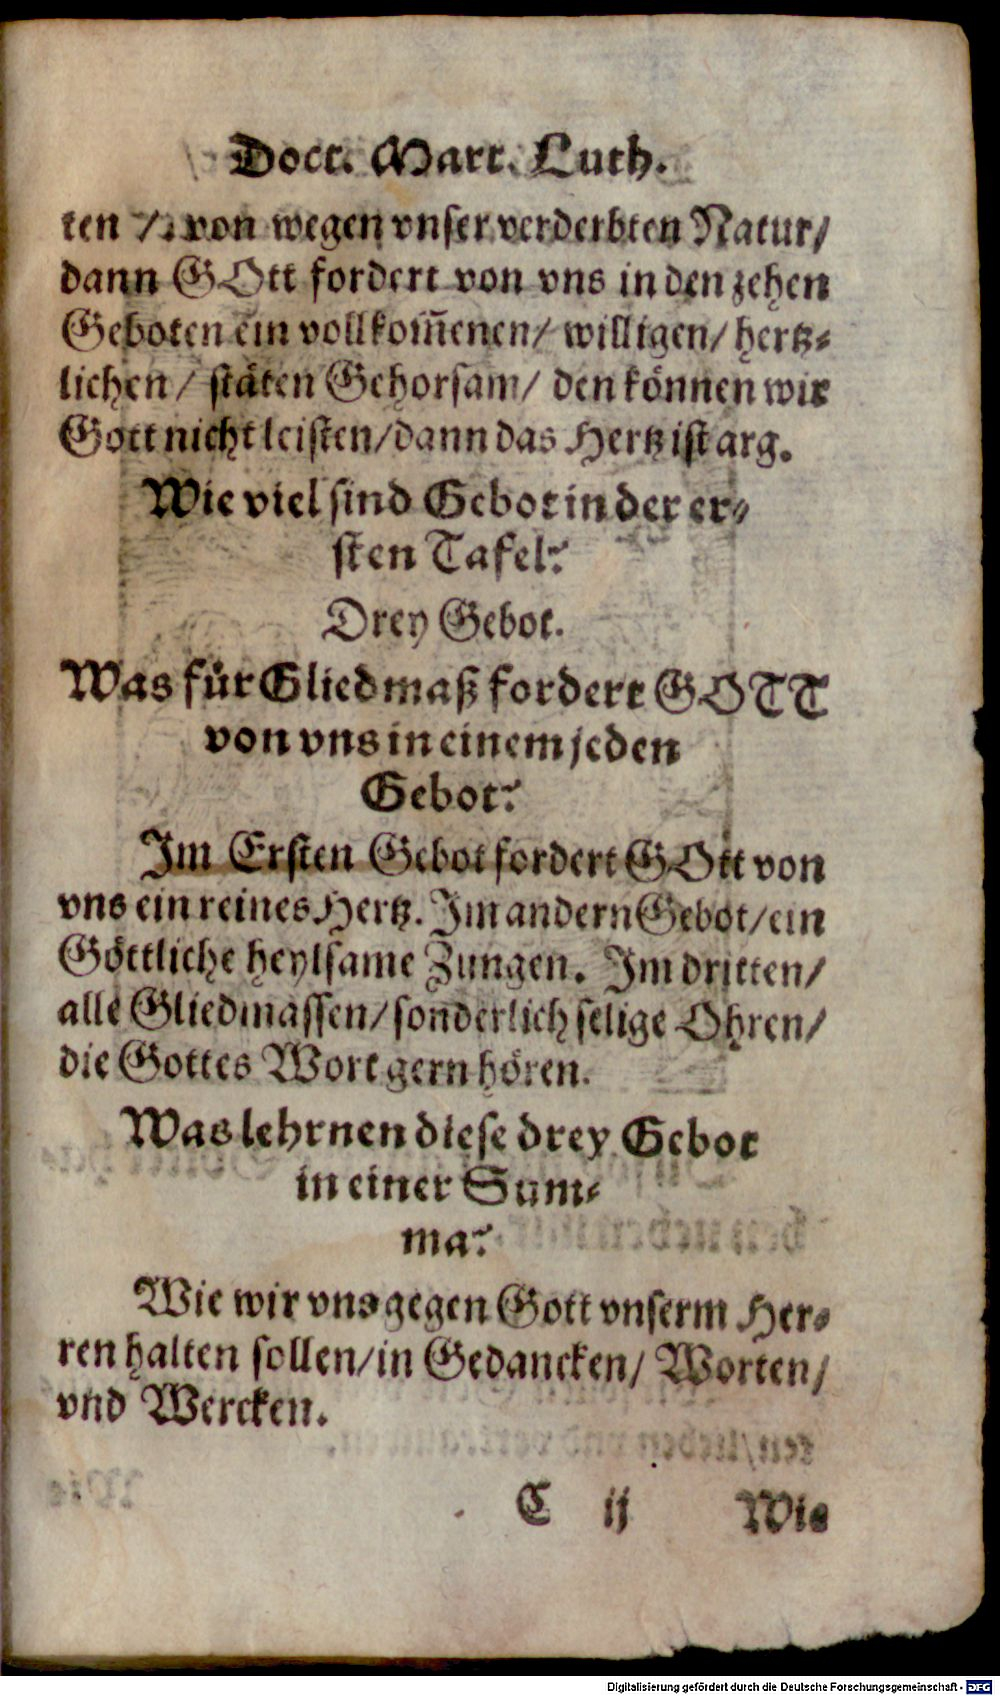 Doct. Mart. Luth.
ten / von wegen vnser verderbten Natur/
dann GOtt fordert von vns in den zehen
Geboten ein vollkom̃enen/ willigen/ hertz-
lichen/ stäten Gehorsam/ den können wir
Gott nicht leisten/dann das Hertz ist arg.
Wie viel sind Gebot in der er-
sten Tafel?
Drey Gebot.
Was für Gliedmaß fordert GOTT
von vns in einem jeden
Gebot?
Im Ersten Gebot fordert GOtt von
vns ein reines Hertz. Im andern Gebot/ein
Göttliche heylsame Zungen. Im dritten/
alle Gliedmassen/sonderlich selige Ohren/
die Gottes Wort gern hören.
Was lehrnen diese drey Gebot
in einer Sum-
ma?
Wie wir vns gegen Gott vnserm Her-
ren halten sollen/in Gedancken/ Worten/
vnd Wercken.
C ij Wie
Digitalisierung gefördert durch die Deutsche Forschungsgemeinschaft - DFG